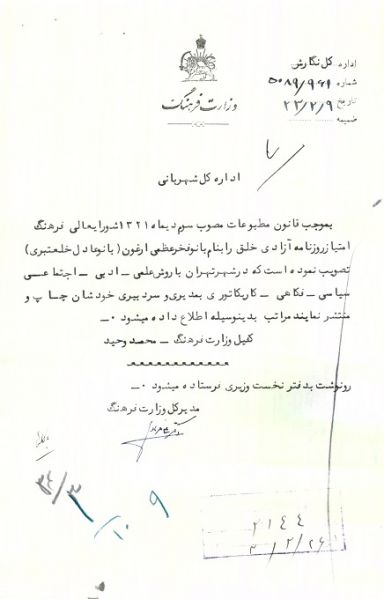 وزارت فرهنگ
اداره کل نگارش
شماره ۵۰۸۹/۹۶۱
تاریخ ۲۳/۲/۹
ضمیمه
اداره کل شهربانی
بموجب قانون مطبوعات مصوب سوم دیماه ۱۳۲۱ شورایعالی فرهنگ
امتیاز روزنامه آزادی خلق را بنام بانو فخر عظمی ارغون (بانو عادل خلعتبری)
تصویب نموده است که در شهر تهران با روش علمی - ادبی - اجتماعی
سیاسی - فکاهی - کاریکاتوری بمدیری و سردبیری خودشان چاپ و
منتشر نمایند مراتب بدینوسیله اطلاع داده میشود ۰-
کفیل وزارت فرهنگ - محمد وحید
رونوشت بدفتر نخست وزیری فرستاده میشود ۰-
مدیر کل وزارت فرهنگ
۲۱۴۴